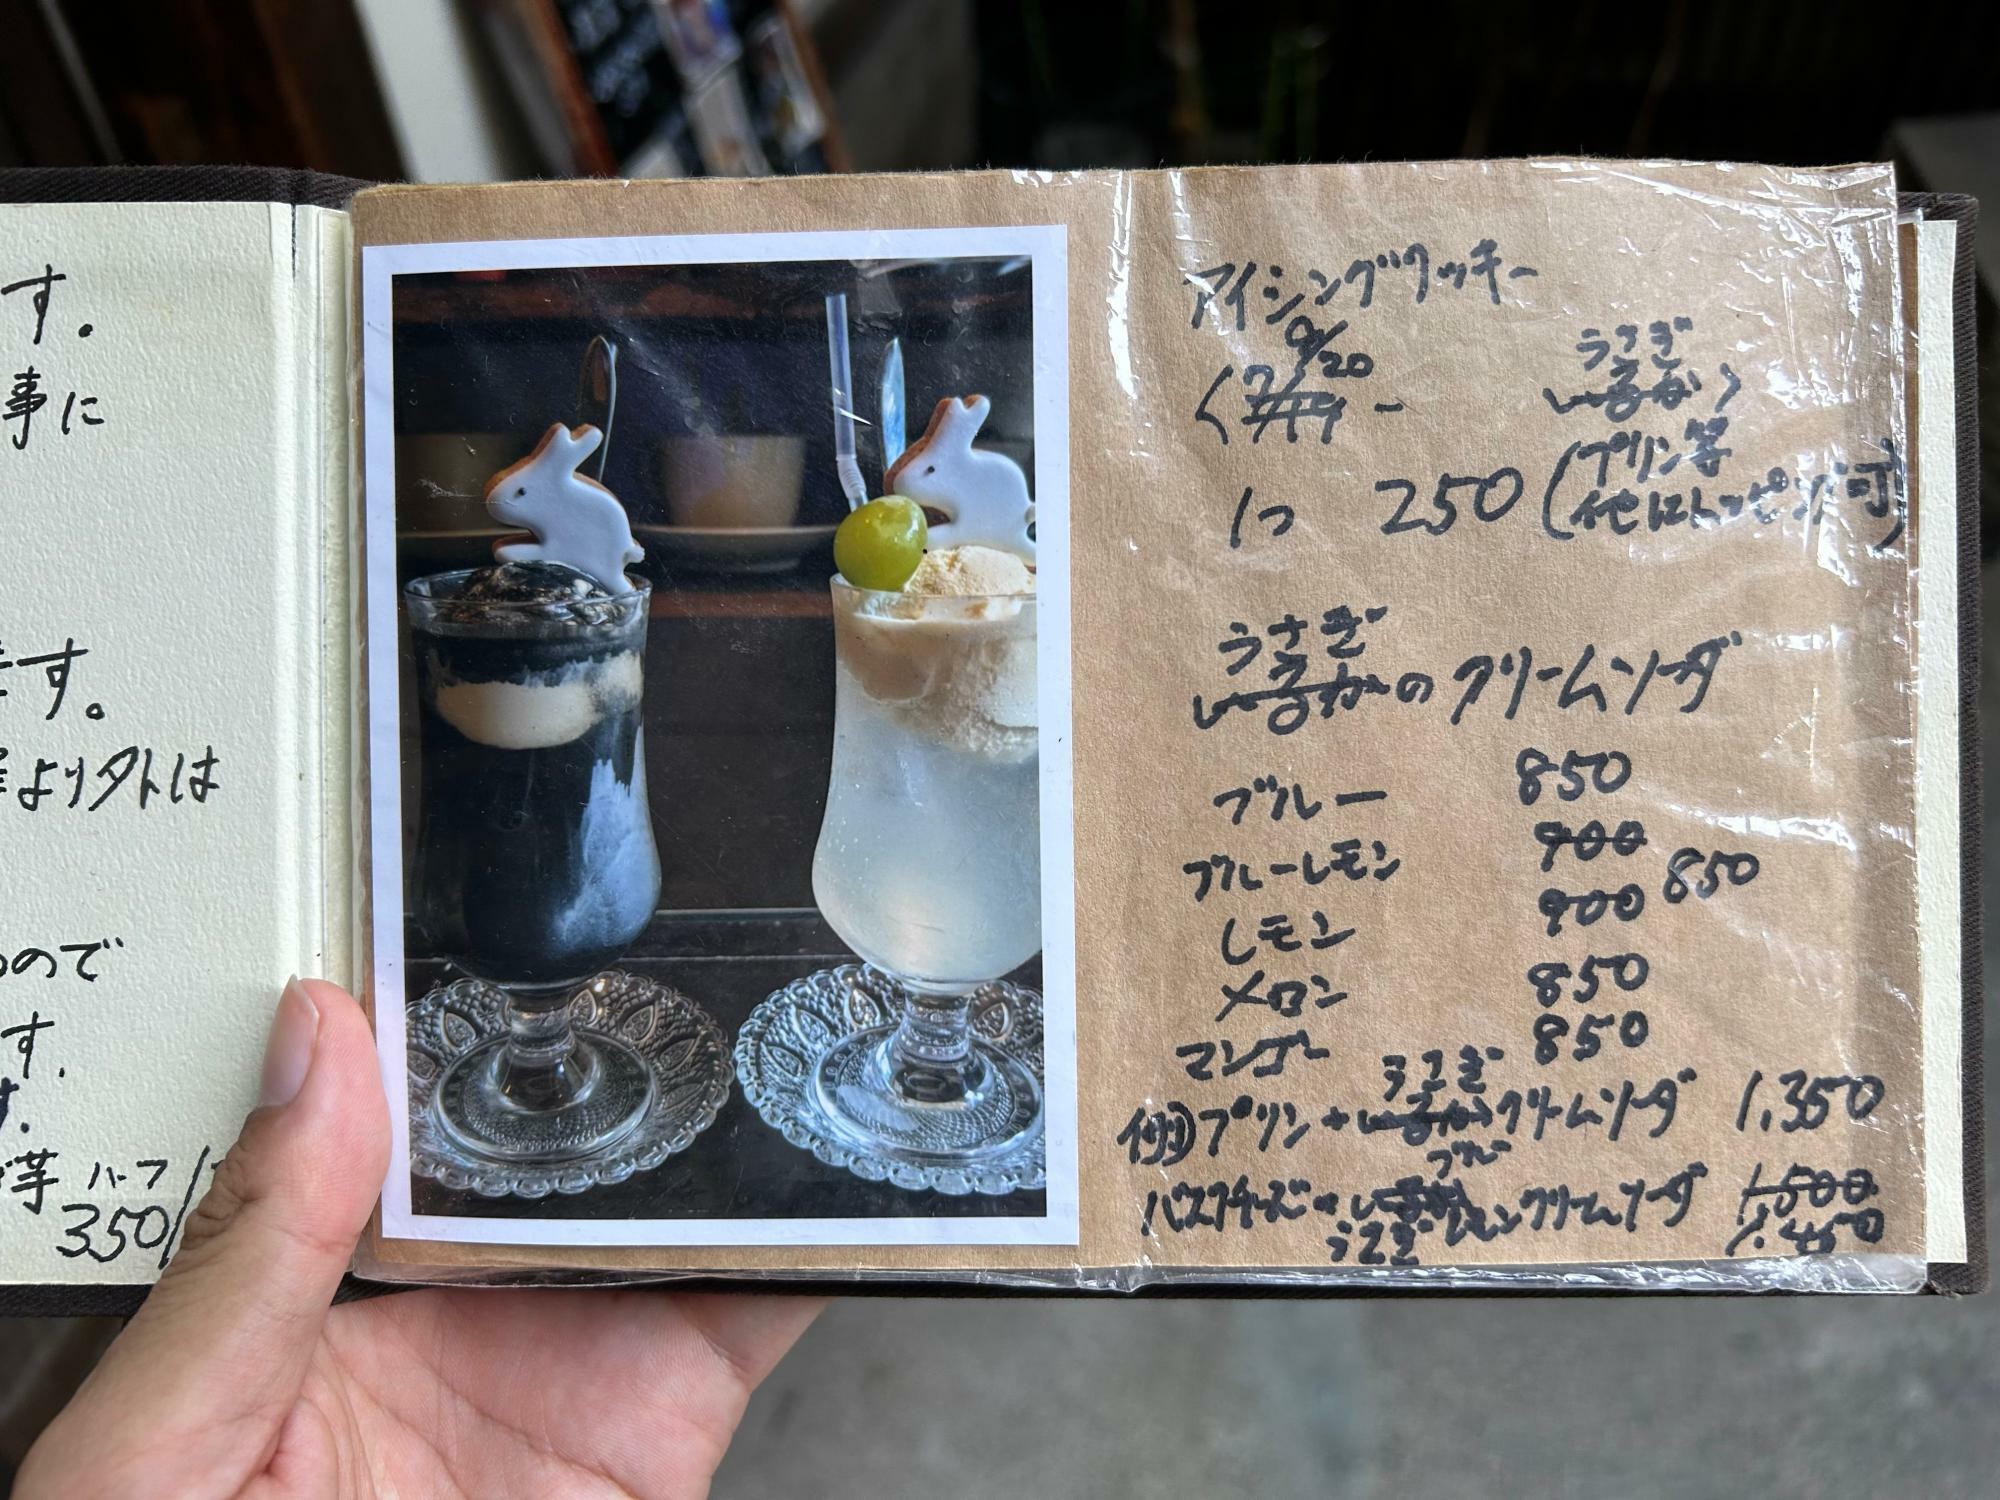 す。
事に
ます。
より外は
ので
す.
す.
芋 ハーフ
350/
アイシングクッキー
9/20
〈 7/14 -
うさぎ
いるか 〉
1つ 250 (プリン等
他にトッピング可)
うさぎ
いるかのクリームソーダ
ブルー 850
ブルーレモン 900 850
レモン 900
メロン 850
マンゴー 850
うさぎ
例)プリン+いるかクリームソーダ 1,350
ブルー
バスクチーズ+いるかレモンクリームソーダ 1,500
うさぎ 1,450